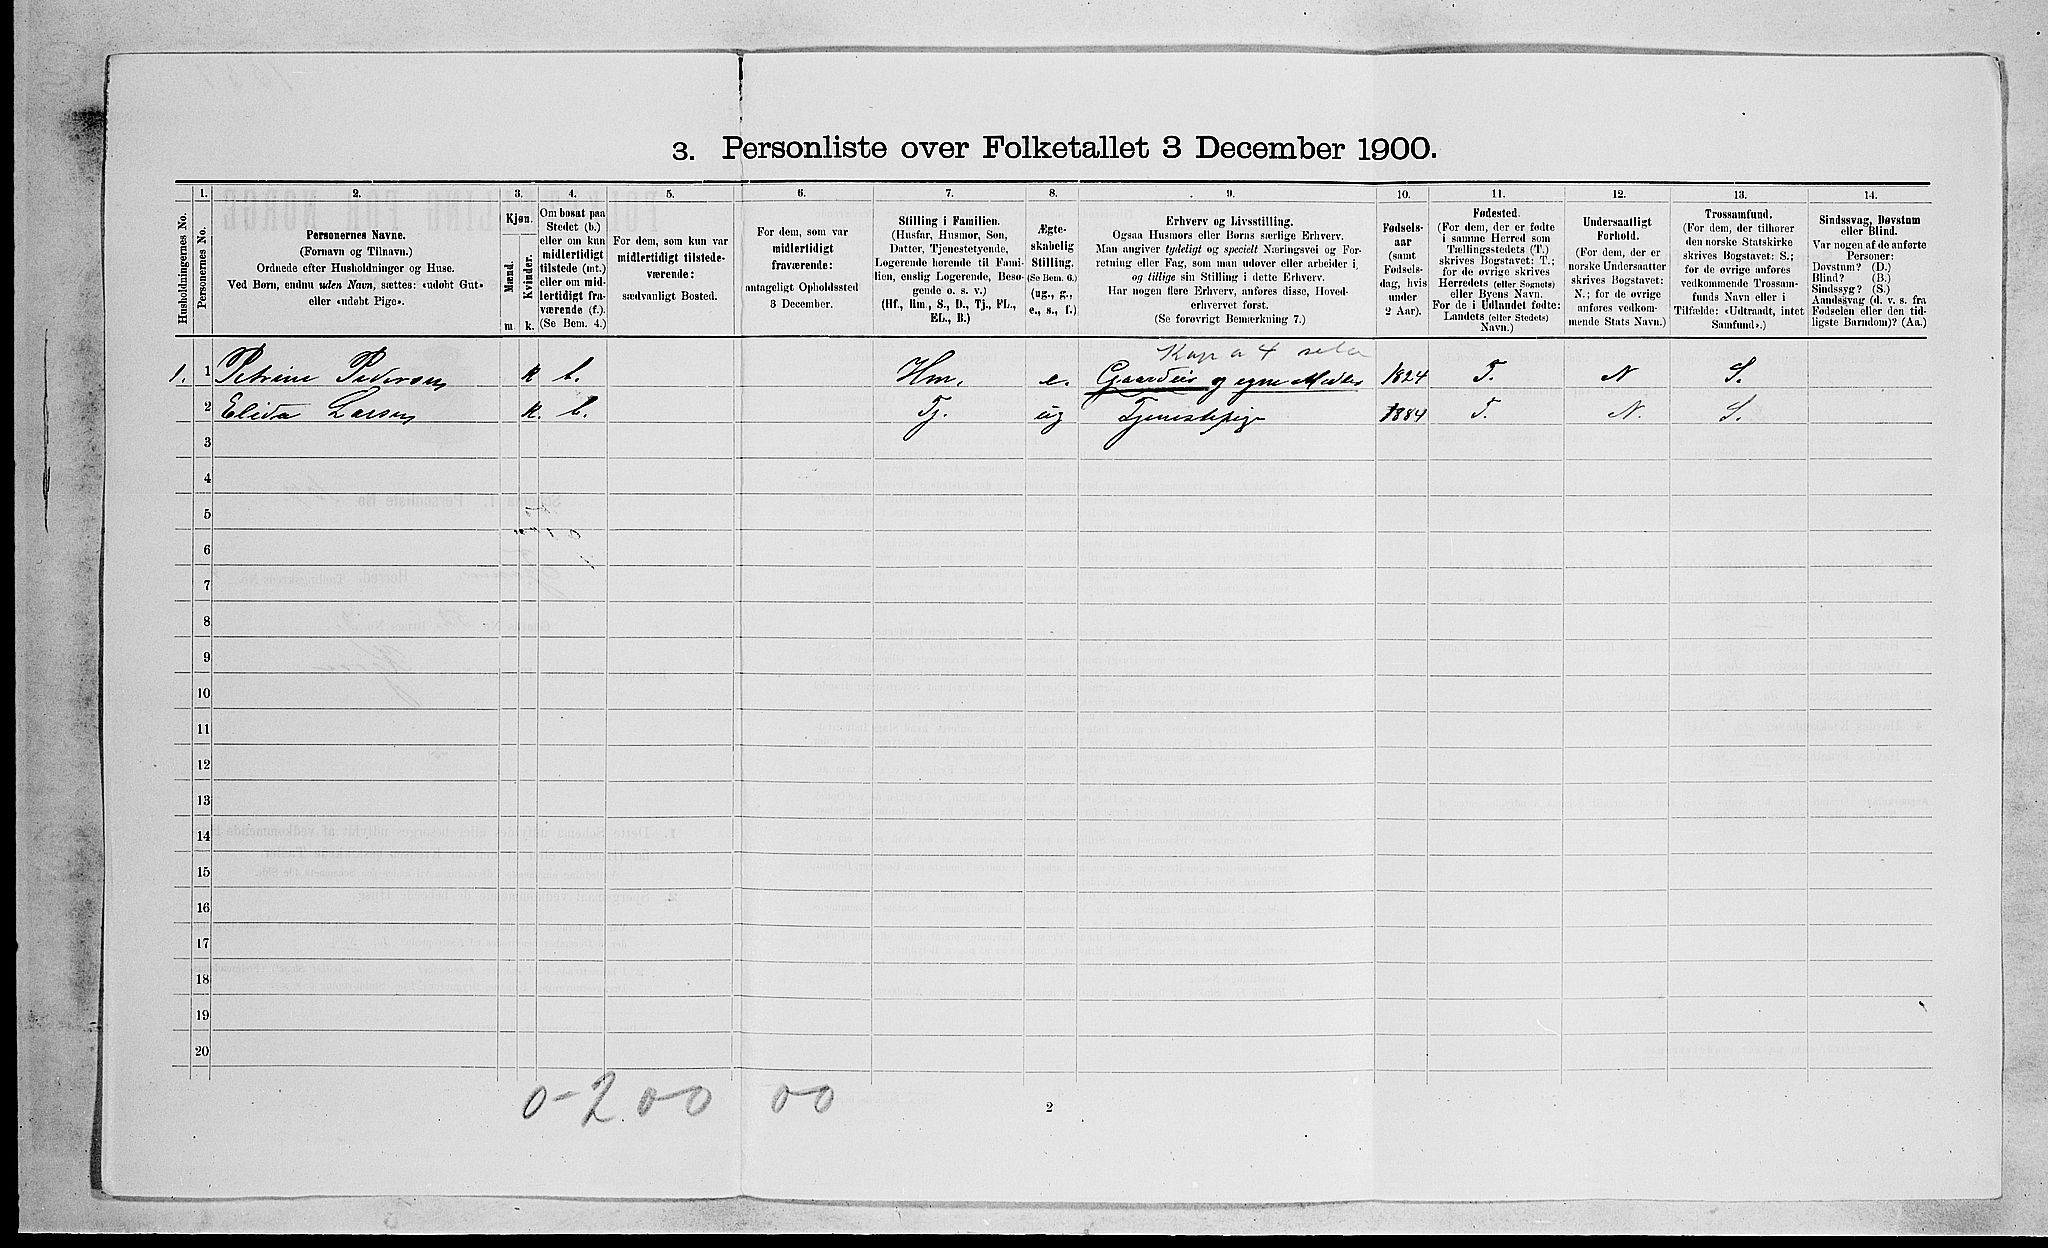 3. Personliste over Folketallet 3 December 1900.
1. 2. 3. 4. 5. 6. 7. 8. 9. 10. 11. 12. 13. 14.
Husholdningernes No.
Personernes No.
Personernes Navne.
(Fornavn og Tilnavn.)
Ordnede efter Husholdninger og Huse.
Ved Børn, endnu uden Navn, sættes: «udøbt Gut»
eller «udøbt Pige».
Kjøn.
Mænd.
Kvinder.
m. k.
Om bosat paa
Stedet (b.)
eller om kun
midlertidigt
tilstede (mt.)
eller om mid-
lertidigt fra-
værende (f.).
(Se Bem. 4.)
For dem, som kun var
midlertidigt tilstede-
værende:
sædvanligt Bosted.
For dem, som var
midlertidigt
fraværende:
antageligt Opholdssted
3 December.
Stilling i Familien.
(Husfar, Husmor, Søn,
Datter, Tjenestetyende,
Logerende hørende til Fami-
lien, enslig Logerende, Besø-
gende o. s. v.)
(Hf., Hm., S., D., Tj., FL.,
EL., B.)
Ægte-
skabelig
Stilling.
(Se Bem. 6.)
(ug., g.,
e., s., f.)
Erhverv og Livsstilling.
Ogsaa Husmors eller Børns særlige Erhverv.
Man angiver tydeligt og specielt Næringsvei og For-
retning eller Fag, som man udøver eller arbeider i,
og tillige sin Stilling i dette Erhverv.
Har nogen flere Erhverv, anføres disse, Hoved-
erhvervet først.
(Se forøvrigt Bemærkning 7.)
Fødsels-
aar
(samt
Fødsels-
dag, hvis
under
2 Aar).
Fødested.
(For dem, der er fødte
i samme Herred som
Tællingsstedets (T.)
skrives Bogstavet: T.;
for de øvrige skrives
Herredets (eller Sognets)
eller Byens Navn.
For de i Udlandet fødte:
Landets (eller Stedets)
Navn.)
Undersaatligt
Forhold.
(For dem, der er
norske Undersaatter
skrives Bogstavet:
N.; for de øvrige
anføres vedkom-
mende Stats Navn.)
Trossamfund.
(For dem, der tilhører
den norske Statskirke
skrives Bogstavet: S.;
for de øvrige anføres
vedkommende Trossam-
funds Navn eller i
Tilfælde: «Udtraadt, intet
Samfund».)
Sindssvag, Døvstum
eller Blind.
Var nogen af de anførte
Personer:
Døvstum? (D.)
Blind? (B.)
Sindssyg? (S.)
Aandssvag (d. v. s. fra
Fødselen eller den tid-
ligste Barndom)? (Aa.)
Kap a 4
1. 1 Petrine Pedersen k b. Hm. e. Gaardeis og egne Midler 1824 T. N S.
2 Elida Larsen k. b. Tj. ug Tjenestepige 1884 T. N. S.
3
4
5
6
7
8
9
10
11
12
13
14
15
16
17
18
19
20
0-2 00 00
2